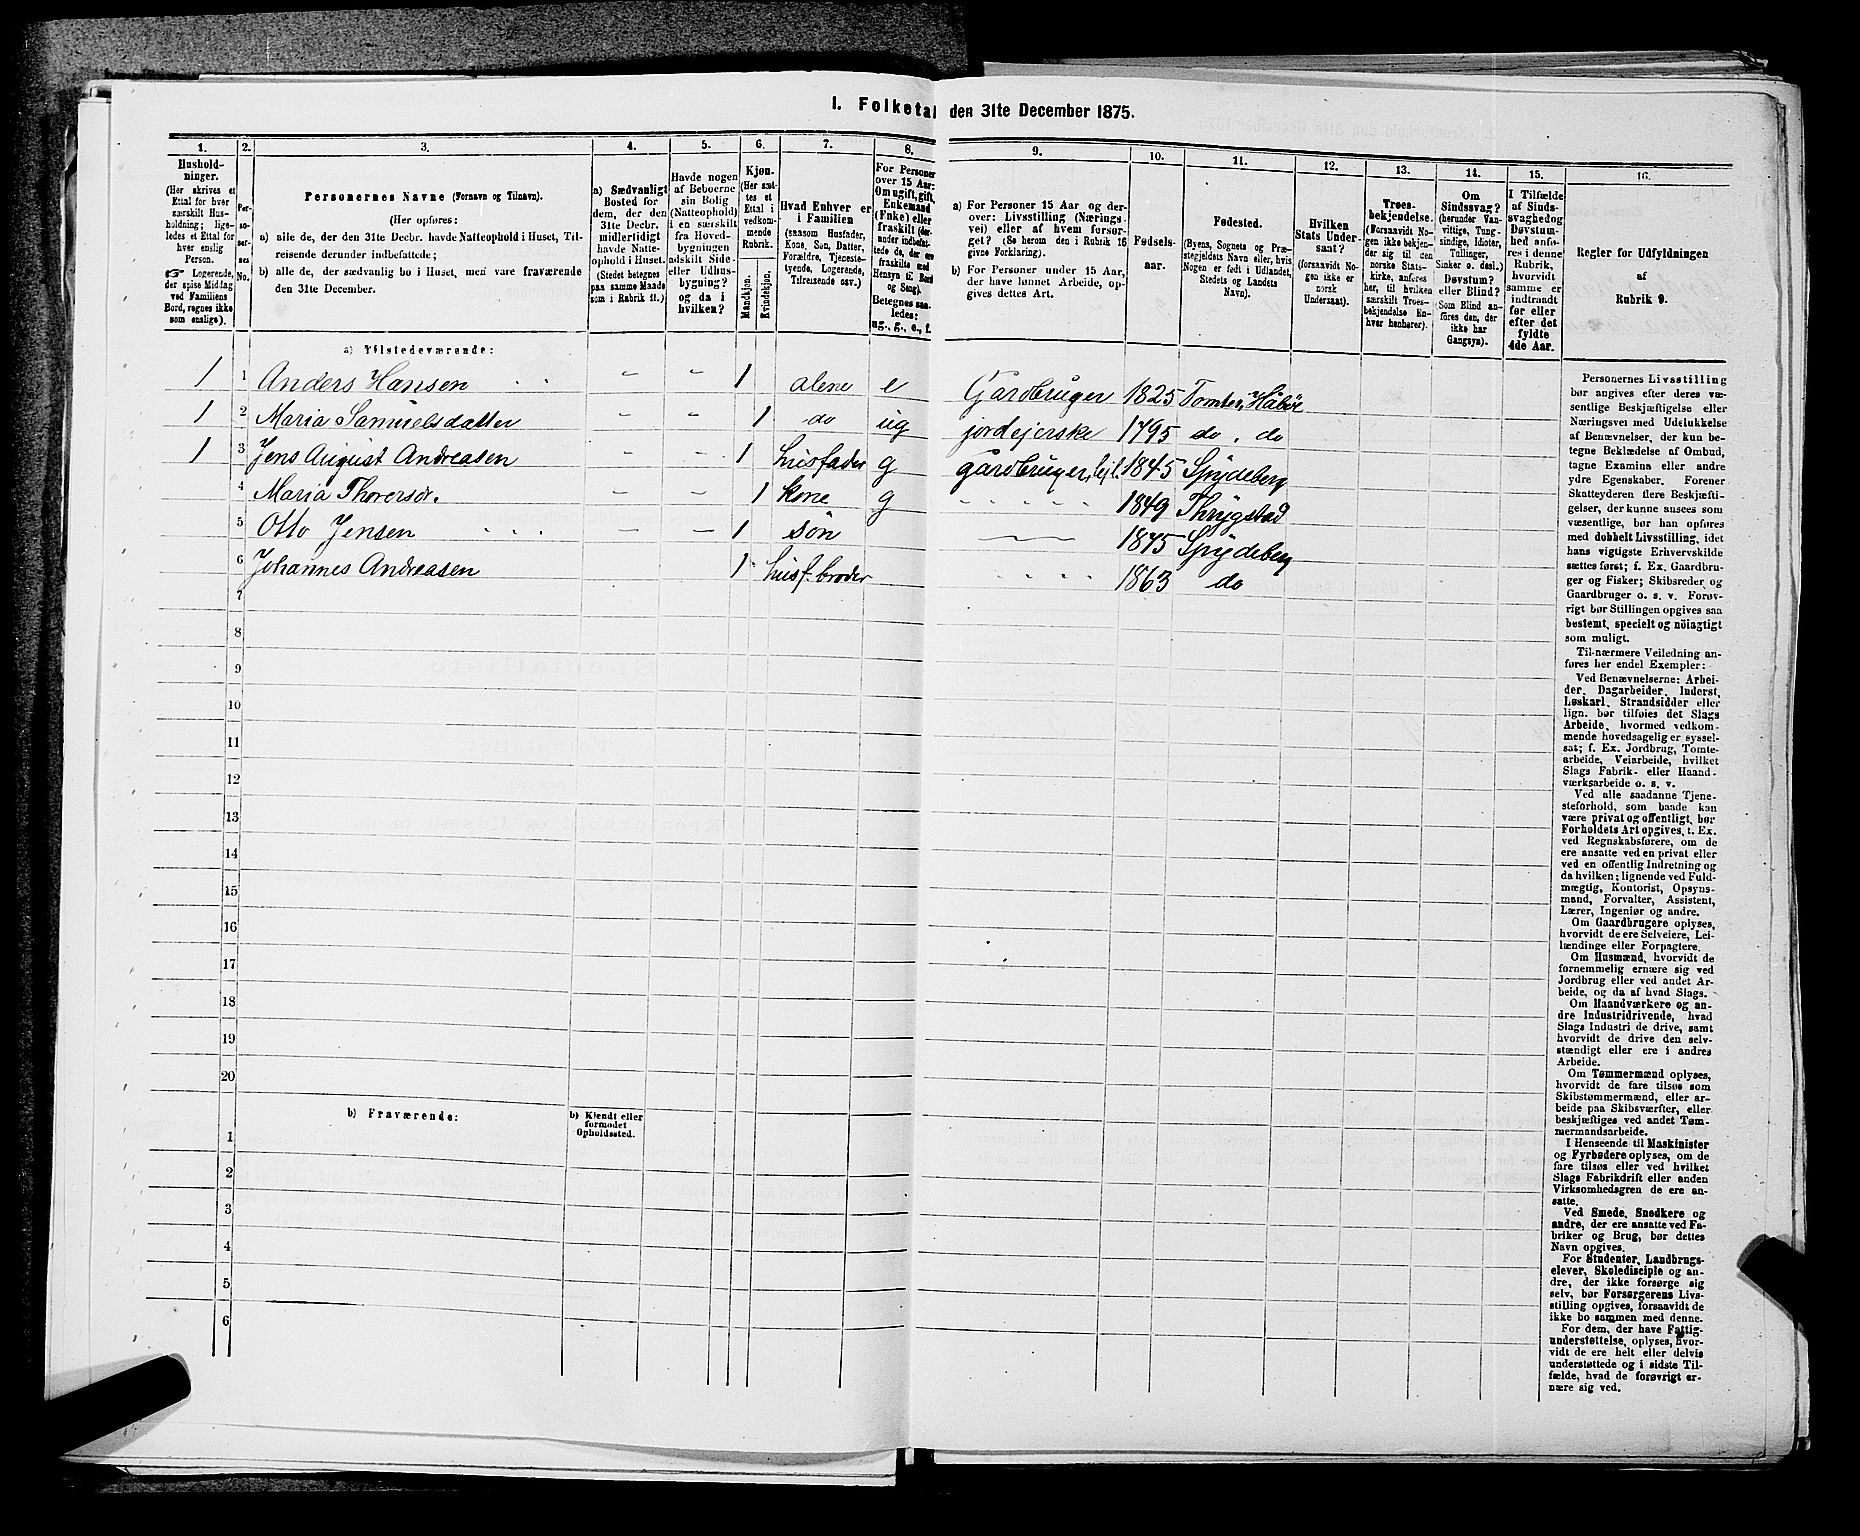 I. Folketal den 31te December 1875.
1.
Husholdninger.
(Her skrives et
Ettal for hver
særskilt Husholdning;
ligeledes et Ettal for
hver enslig
Person.
☞ Logerende,
der spise Middag
ved Familiens
Bord, regnes ikke
som enslige).
2.
Personernes
No.
3.
Personernes Navne (Fornavn og Tilnavn).
(Her opføres:
a) alle de, der den 31te Decbr. havde Natteophold i Huset, Tilreisende
derunder indbefattede;
b) alle de, der sædvanlig bo i Huset, men vare fraværende
den 31te December.
4.
a) Sædvanligt
Bosted for
dem, der den
31te Decbr.
midlertidigt
havde Natteophold
i Huset.
(Stedet betegnes
paa samme Maade
som i Rubrik 11.)
5.
Havde nogen
af Beboerne
sin Bolig
(Natteophold)
i en særskilt
fra Hovedbygningen
adskilt Side-
eller Udhusbygning?
og da i
hvilken?
6.
Kjøn.
(Her sættes
et
Ettal i
vedkommende
Rubrik.
Mandkjøn.
Kvindekjøn.
7.
Hvad Enhver er
i Familien
(saasom Husfader,
Kone, Søn, Datter,
Forældre, Tjenestetyende,
Logerende,
Tilreisende osv.)
8.
For Personer
over 15 Aar:
Om ugift, gift,
Enkemand
(Enke) eller
fraskilt (derunder
indbefattede
de, der ere
fraskilte med
Hensyn til Bord
og Seng).
Betegnes saaledes:
ug., g., e., f.
9.
a) For Personer 15 Aar og derover:
Livsstilling (Næringsvei)
eller af hvem forsørget?
(Se herom den i Rubrik 16
givne Forklaring).
b) For Personer under 15 Aar,
der have lønnet Arbeide, opgives
dettes Art.
10.
Fødselsaar.
11.
Fødested.
(Byens, Sognets og Præstegjeldets
Navn eller, hvis
Nogen er født i Udlandet,
Stedets og Landets
Navn).
12.
Hvilken
Stats Undersaat?
(forsaavidt Nogen
ikke er
norsk
Undersaat).
13.
Troesbekjendelse.
(Forsaavidt Nogen
ikke bekjender
sig til den
norske Statskirke,
anføres
her, til hvilken
særskilt Troesbekjendelse
Enhver
henhører).
14.
Om
Sindssvag?
(herunder Vanvittige,
Tungsindige,
Idioter,
Tullinger,
Sinker o. desl.)
Døvstum?
eller Blind?
(Som Blind anføres
den, der
ikke har
Gangsyn).
15.
I Tilfælde
af Sindssvaghed
og
Døvstumhed
anføres
i denne
Rubrik,
hvorvidt
samme er
indtraadt
før eller
efter det
fyldte
4de Aar.
16.
Regler for Udfyldningen
af
Rubrik 9.
a) Tilstedeværende:
1 1 Anders Hansen - - 1 alene e Gardbruger 1825 Tomter, Håbøl
1 2 Maria Samuelsdatter - - 1 do ug jordejerske 1795 do. do
1 3 Jens August Andreasen - - 1 husfader g gardbruger, lejl. 1845 Spydeberg
4 Maria Thoversdr. - - 1 kone g 1849 Thrygstad
5 Otto Jensen - - 1 søn 1875 Spydeberg
6 Johannes Andreasen 1 husf. broder 1863 do
7
8
9
10
11
12
13
14
15
16
17
18
19
20
b) Fraværende:
b) Kjendt eller
formodet
Opholdssted.
1
2
3
4
5
6
Personernes Livsstilling
bør angives efter deres væsentlige
Beskjæftigelse eller
Næringsvei med Udelukkelse
af Benævnelser, der kun betegne
Beklædelse af Ombud,
tagne Examina eller andre
ydre Egenskaber. Forener
Skatteyderen flere Beskjæftigelser,
der kunne ansees som
væsentlige, bør han opføres
med dobbelt Livsstilling, idet
hans vigtigste Erhvervskilde
sættes først; f. Ex. Gaardbruger
og Fisker; Skibsreder og
Gaardbruger o. s. v. Forøvrigt
bør Stillingen opgives saa
bestemt, specielt og nöiagtigt
som muligt.
Til nærmere Veiledning anføres
her endel Exempler:
Ved Benævnelserne: Arbeider,
Dagarbeider, Inderst,
Løskarl, Strandsidder eller
lign. bør tilføies det Slags
Arbeide, hvormed vedkommende
hovedsagelig er sysselsat;
f. Ex. Jordbrug, Tomtearbeide,
Veiarbeide, hvilket
Slags Fabrik- eller Haandværksarbeide
o. s. v.
Ved alle saadanne Tjenesteforhold,
som baade kan
være privat og offentligt, bør
Forholdets Art opgives, t. Ex.
ved Regnskabsførere, om de
ere ansatte ved en privat eller
ved en offentlig Indretning og
da hvilken; lignende ved Fuldmægtig,
Kontorist, Opsynsmand,
Forvalter, Assistent,
Lærer, Ingeniør og andre.
Om Gaardbrugere oplyses,
hvorvidt de ere Selveiere, Leilændinge
eller Forpagtere.
Om Husmænd, hvorvidt de
fornemmelig ernære sig ved
Jordbrug eller ved andet Arbeide,
og da af hvad Slags.
Om Haandværkere og andre
Industridrivende, hvad
Slags Industri de drive, samt
hvorvidt de drive den selvstændigt
eller ere i andres
Arbeide.
Om Tømmermænd oplyses,
hvorvidt de fare tilsøs som
Skibstømmermænd, eller arbeide
paa Skibsværfter, eller
beskjæftiges ved andet Tømmermandsarbeide.
I Henseende til Maskinister
og Fyrbødere oplyses, om de
fare tilsøs eller ved hvilket
Slags Fabrikdrift eller anden
Virksomhedsgren de ere ansatte.
Ved Smede, Snedkere og
andre, der ere ansatte ved Fabriker
og Brug, bør dettes
Navn opgives.
For Studenter, Landbrugselever,
Skoledisciple og andre,
der ikke forsørge sig
selv, bør Forsørgerens Livsstilling
opgives, forsaavidt de
ikke bo sammen med denne.
For dem, der have Fattigunderstøttelse,
oplyses, hvorvidt
de ere helt eller delvis
understøttede og i sidste Tilfælde,
hvad de forøvrigt ernære
sig ved.